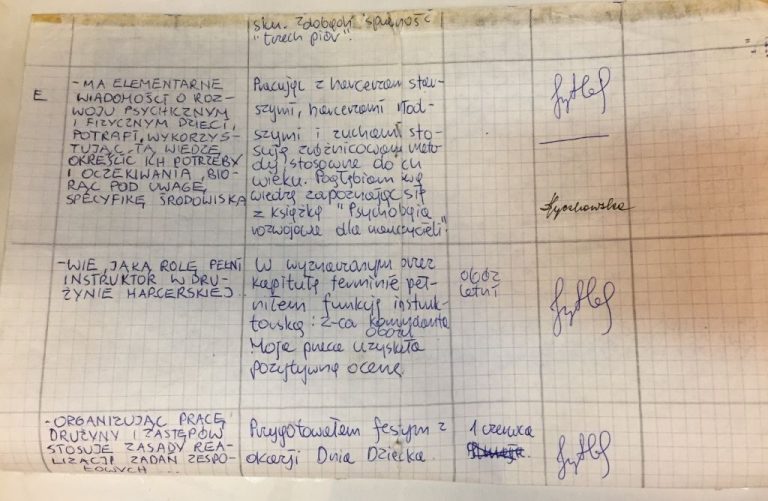 skr. zdobądź sprawność
"trzech piór".
E
- MA ELEMENTARNE
WIADOMOŚCI O ROZ-
WOJU PSYCHICZNYM
I FIZYCZNYM DZIECI,
POTRAFI, WYKORZYS-
TUJĄC TĄ WIEDZĘ
OKREŚLIĆ ICH POTRZEBY
I OCZEKIWANIA, BIO-
RĄC POD UWAGĘ
SPECYFIKĘ ŚRODOWISKA
Pracując z harcerzam star-
szymi, harcerzami młod-
szymi i zuchami sto-
suję zróżnicowane meto-
dy stosowne do ich
wieku. Pogłębiam swą
wiedzę zapoznając się
z książką "Psychologia
rozwojowa dla nauczycieli"
- WIE, JAKĄ ROLĘ PEŁNI
INSTRUKTOR W DRU-
ŻYNIE HARCERSKIEJ.
W wyznaczonym przez
kapitułę terminie peł-
niłem funkcję instruk-
torską: z-ca komendanta
obozu
Moja praca uzyskała
pozytywną ocenę
obóz
letni
- ORGANIZUJĄC PRACĘ
DRUŻYNY I ZASTĘPÓW
STOSUJE ZASADY REA-
LIZACJI ZADAŃ ZESPO-
ŁOWYCH...
Przygotowałem festyn z
okazji Dnia Dziecka.
1 czerwca